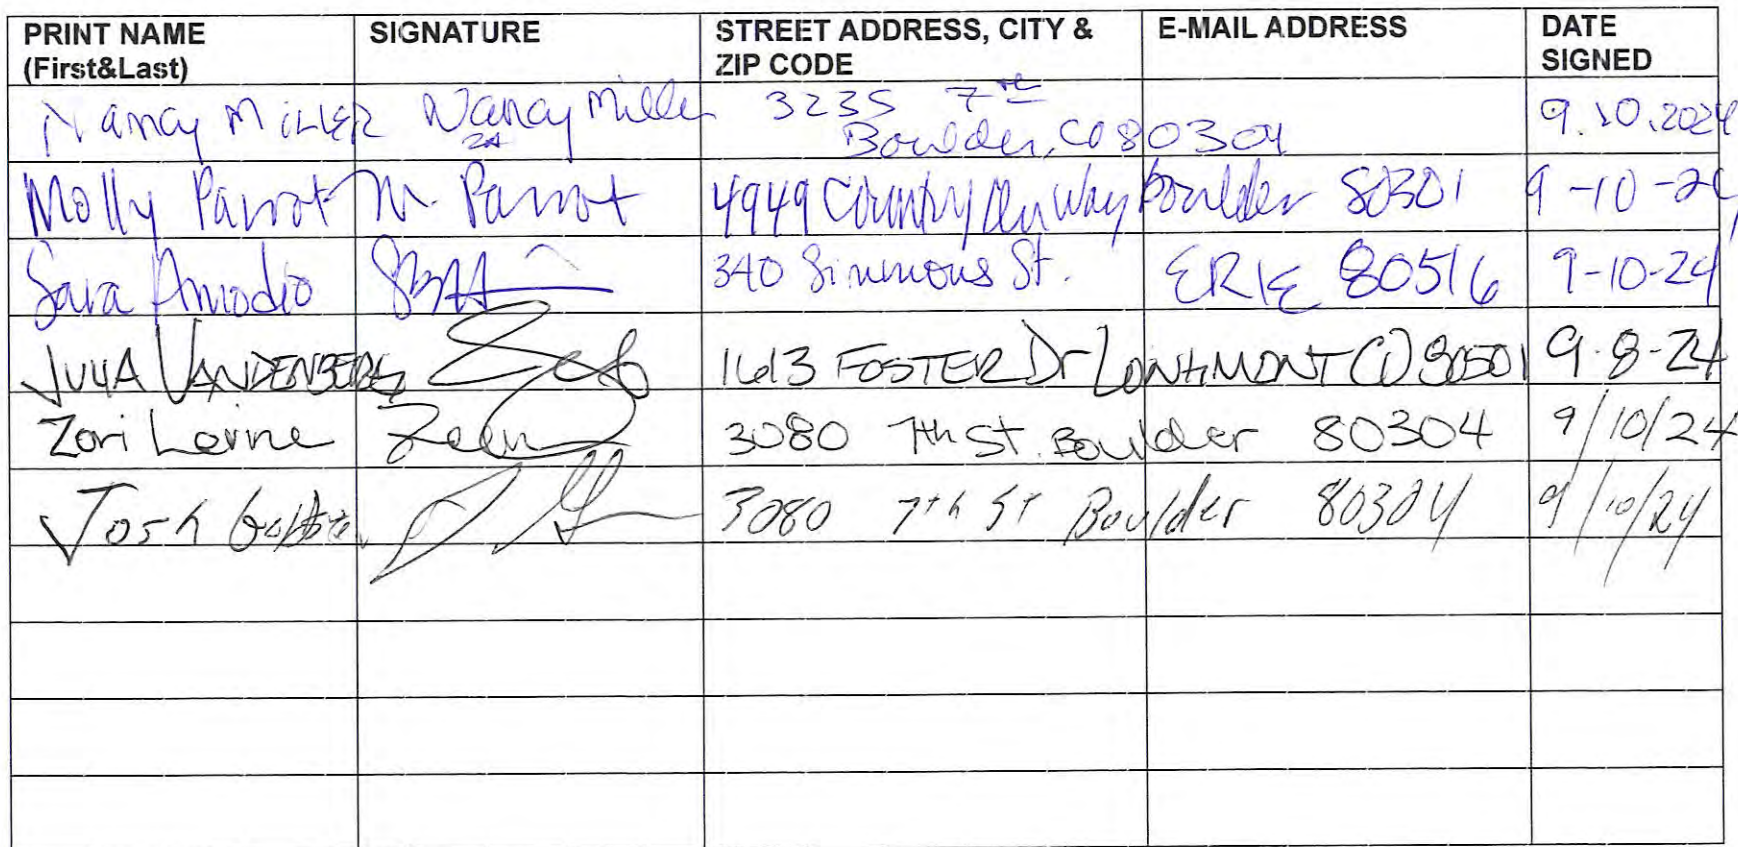 PRINT NAME SIGNATURE STREET ADDRESS, CITY & E-MAIL ADDRESS DATE
(First&Last) ZIP CODE SIGNED
Nancy MiLLER Nancy Miller 3235 7th 9.10.2024
Boulder, CO 80304
Molly Parrot M. Parrot 4949 Country Way Boulder 80301 9-10-24
Sara Amodio 340 Simmons St. ERIE 80516 9-10-24
JULIA VANDENBERG 1613 FOSTER Dr LONGMONT CO 80501 9-8-24
Zori Levine 3080 7th St. Boulder 80304 9/10/24
Josh 3080 7th St Boulder 80304 9/10/24